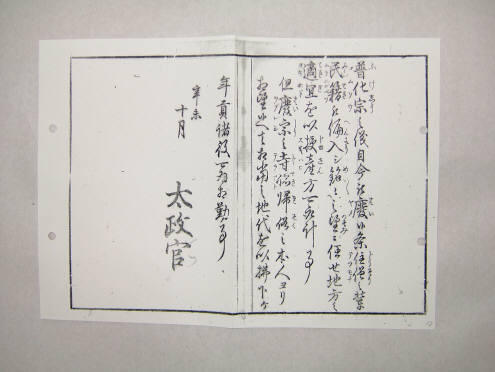 普化宗之儀自今被廢候条住僧之輩
民籍江編入シ銘々之望ニ任セ地方之
適宜を以授産方可取計事
但廢宗之寺院歸俗之本人ヨリ
相望候ハヽ相当之地代を以拂下ケ
年貢諸役可為相勤事
辛未
十月
太政官